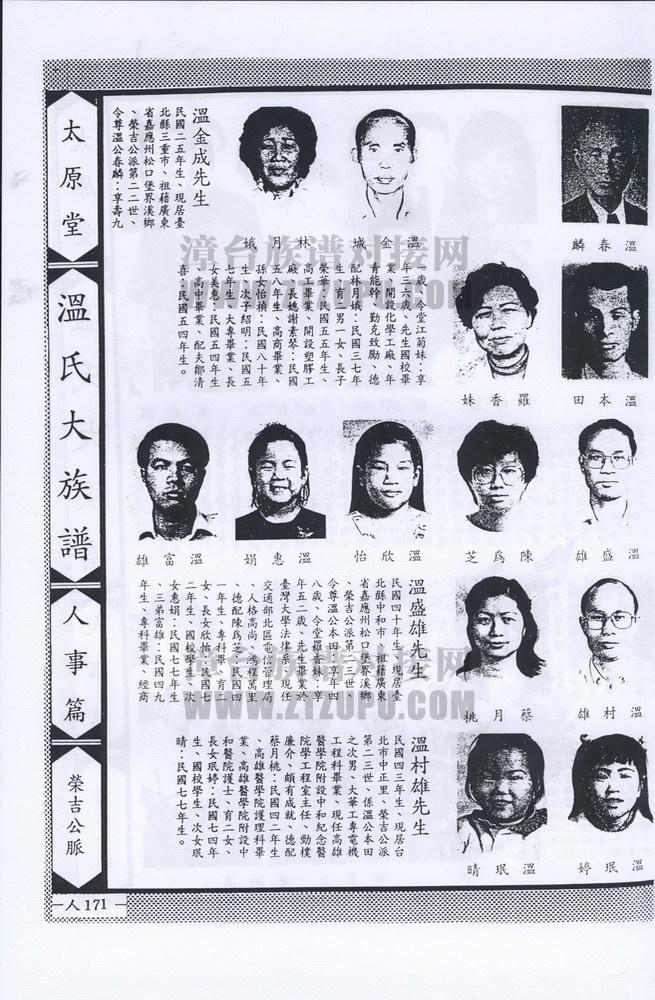 太原堂
溫氏大族譜
人事篇
榮吉公脈
人171
溫春麟
溫金城
林月娥
溫金成先生
民國二五年生、現居臺
北縣三重市、祖籍廣東
省嘉應州松口堡界溪鄉
、榮吉公派第二二世、
令尊溫公春麟：享壽九
一歲、令堂江菊妹：享
年三六歲、先生國校畢
業、開設化學工廠、年
青能幹、勤克致勵、德
配林月娥：民國三七年
生、育二男一女、長子
榮華：民國五五年生、
高工畢業、開設塑膠工
廠、長媳謝素琴：民國
五八年生、高商畢業、
孫女怡楨：民國八十年
生、次子紹明：民國五
七年生、大專畢業、長
女美惠：民國五四年生
、高中畢業、配夫鄒清
喜：民國五四年生。
溫本田
羅香妹
溫盛雄
陳為芝
溫欣怡
溫惠娟
溫富雄
溫盛雄先生
民國四十年生、現居臺
北縣中和市、祖籍廣東
省嘉應州松口堡界溪鄉
、榮吉公派第二三世、
令尊溫公本田：享年四
八歲、令堂羅香妹：享
年五二歲、先生畢業於
臺灣大學法律系、現任
交通部北區電信管理局
、人格高尚、鴻程萬里
、德配陳為芝：民國四
一年生、專科畢、育二
女、長女欣怡：民國七
二年生、國校學生、次
女惠娟：民國七七年生
、三弟富雄：民國四九
年生、專科畢業、經商
溫村雄
蔡月桃
溫珉婷
溫珉晴
溫村雄先生
民國四三年生、現居台
北市中正里、榮吉公派
第二三世、係溫公本田
之次男、大華工專電機
工程科畢業、現任高雄
醫學院附設中和紀念醫
院學工程室主任、勤樸
廉介、頗有成就、德配
蔡月桃：民國四二年生
、高雄醫學院護理科畢
業、高雄醫學院附設中
和醫院護士、育二女、
長女珉婷：民國七四年
生、國校學生、次女珉
晴：民國七七年生。
漳台族谱对接网
WWW.ZTZUPU.COM
漳台族谱对接网
WWW.ZTZUPU.COM